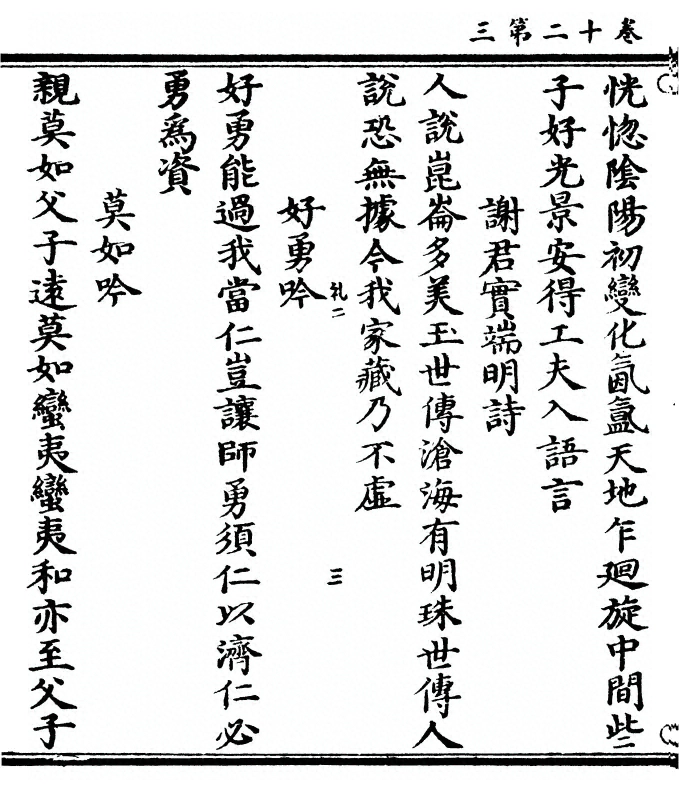 卷十二第三
恍惚陰陽初變化氤氳天地乍廻旋中間些
子好光景安得工夫入語言
謝君實端明詩
人說崑崙多美玉世傳滄海有明珠世傳人
說恐無據今我家藏乃不虛
好勇吟
三
好勇能過我當仁豈讓師勇須仁以濟仁必
勇爲資
莫如吟
親莫如父子遠莫如蠻夷蠻夷和亦至父子